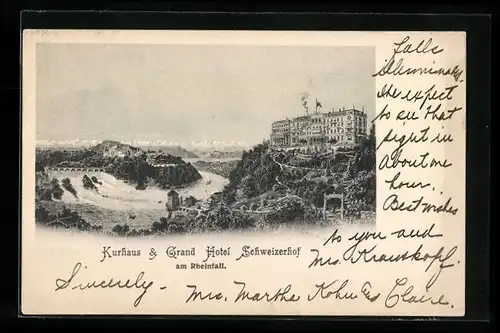 falls
illuminated
We expect
to see that
sight in
about one
hour.
Best wishes
to you and
Mrs. Krauskopf.
Kurhaus & Grand Hotel Schweizerhof
am Rheinfall.
Sincerely -
Mrs. Martha Kohn Claire.